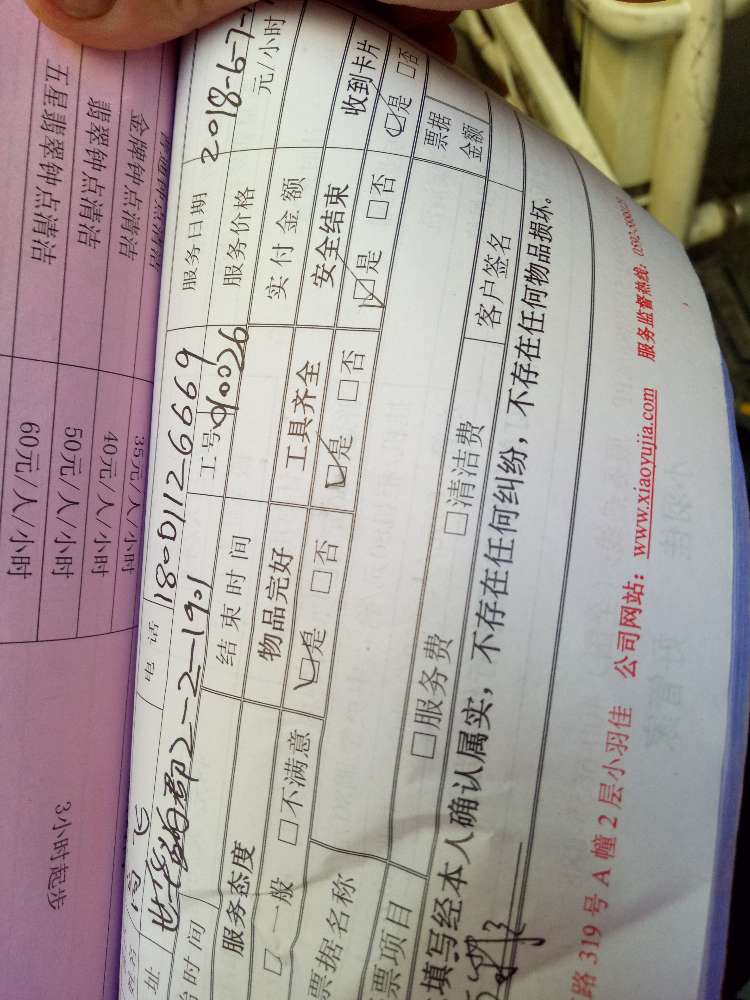 金牌钟点清洁 35元/人/小时
翡翠钟点清洁 40元/人/小时
五星翡翠钟点清洁 50元/人/小时
60元/人/小时
3小时起步
电话 18001126669 服务日期 2018-6-7
址 2-2-1901 工号 010026 服务价格 元/小时
始时间 结束时间 实付金额
服务态度 物品完好 工具齐全 安全结束 收到卡片
□一般 □不满意 □是 □否 □是 □否 □是 □否 □是 □否
票据名称 票据金额
票项目 □服务费 □清洁费 客户签名
填写经本人确认属实，不存在任何纠纷，不存在任何物品损坏。
路 319 号 A 幢 2 层小羽佳 公司网站：www.xiaoyujia.com 服务监督热线：